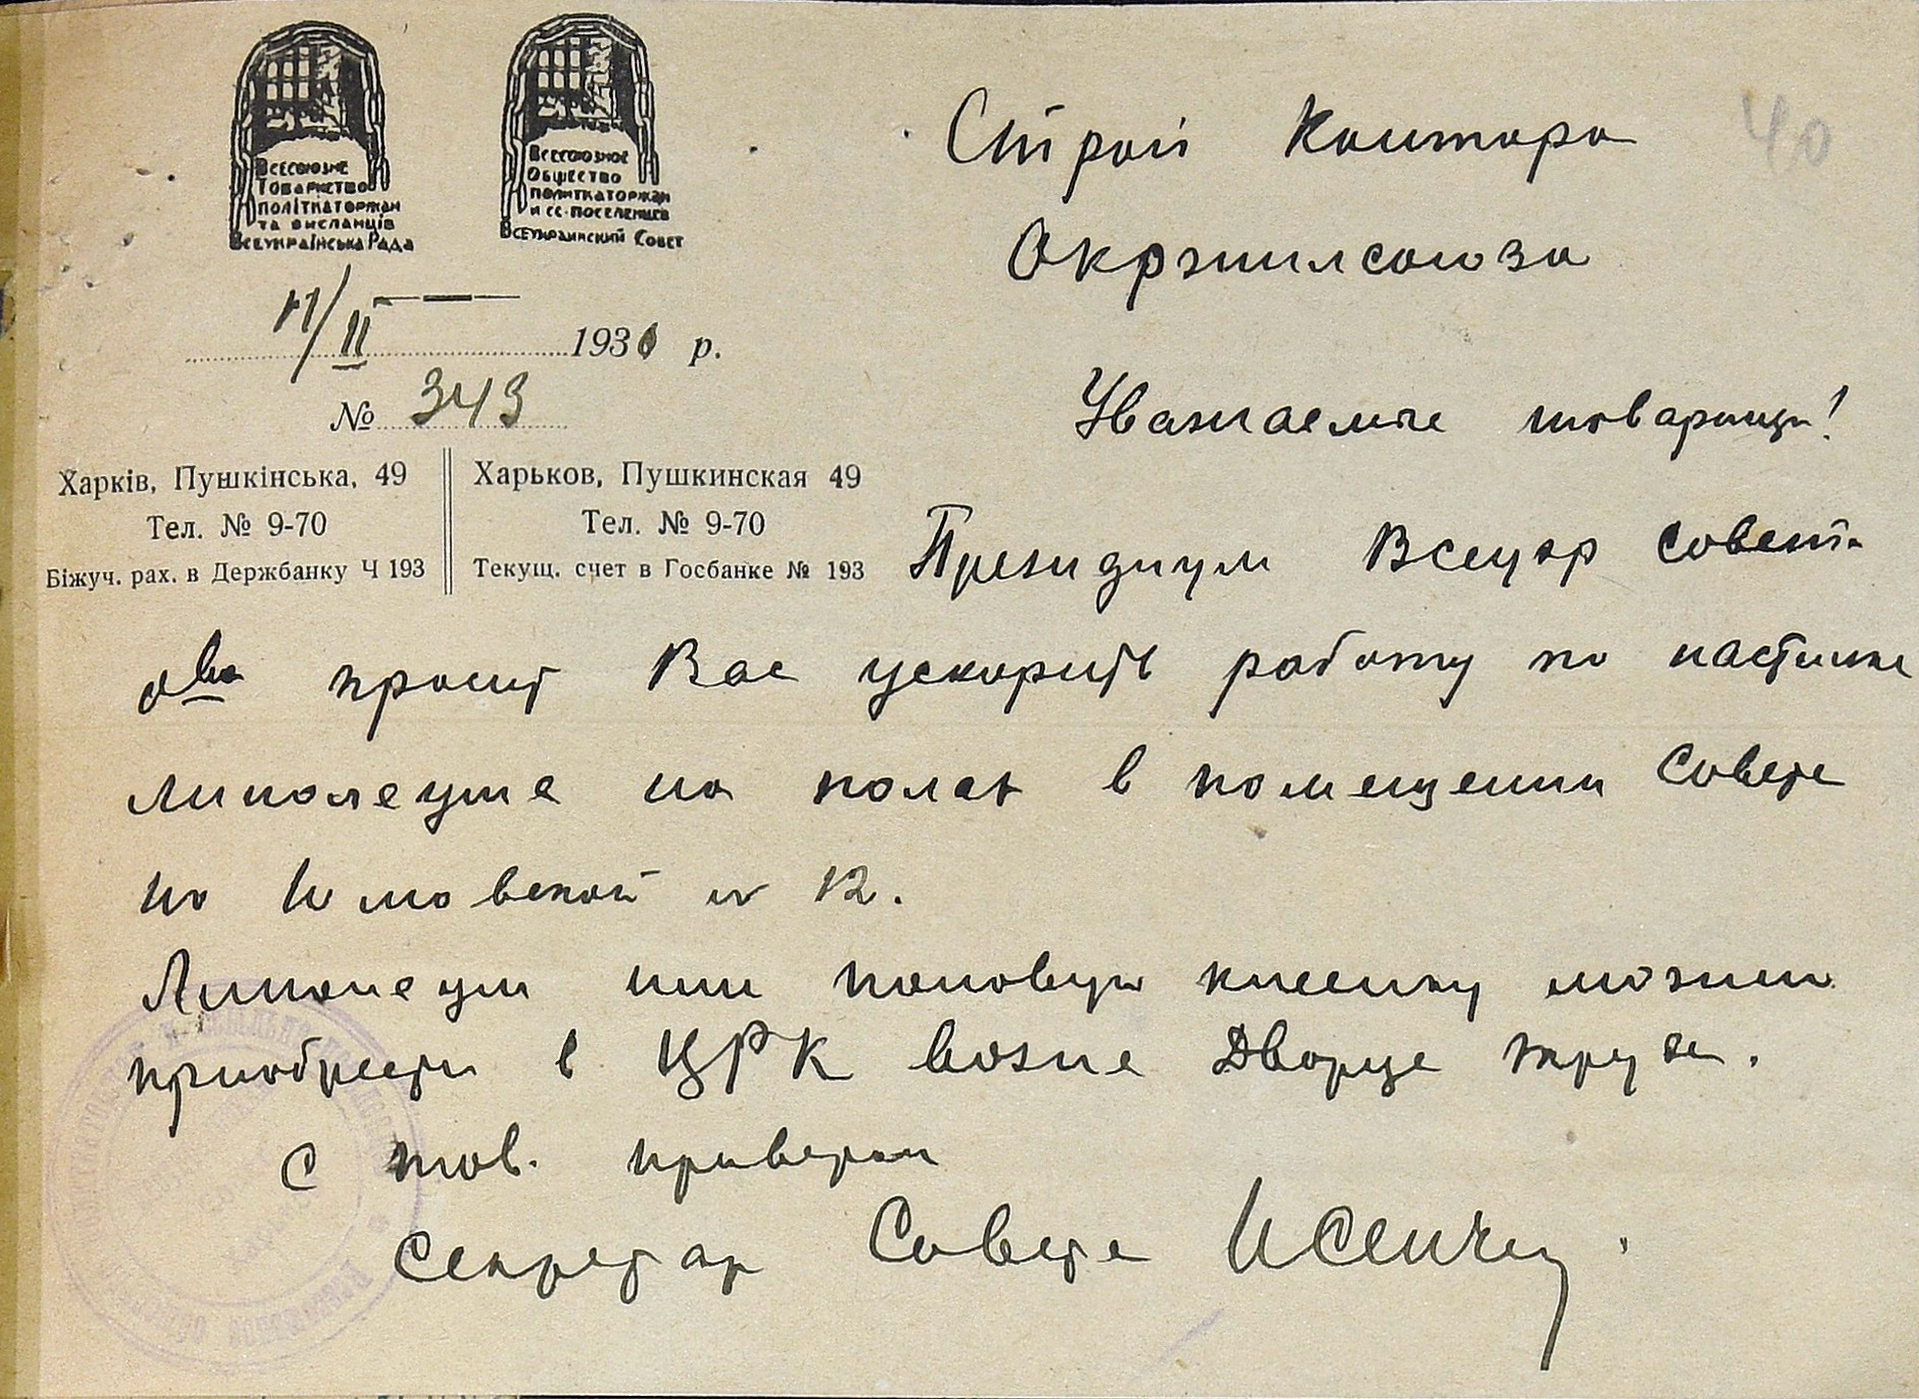 Всесоюзне
Товариство
політкаторжан
та висланців
Всеукраїнська Рада
Всесоюзное
Общество
политкаторжан
и сс-поселенцев
Всеукраинский Совет
11/II 1930 р.
№ 343
Харків, Пушкінська, 49
Тел. № 9-70
Біжуч. рах. в Держбанку Ч 193
Харьков, Пушкинская 49
Тел. № 9-70
Текущ. счет в Госбанке № 193
40
Строй Контора
Окржилсоюза
Уважаемые товарищи!
Президиум Всеукр совета
о-ва просит Вас ускорить работу по настилке
линолеума на полах в помещении Совета
по № 12.
Линолеум или половую клеенку можно
приобрести в ЦРК возле Дворца труда.
С тов. приветом
Секретар Совета